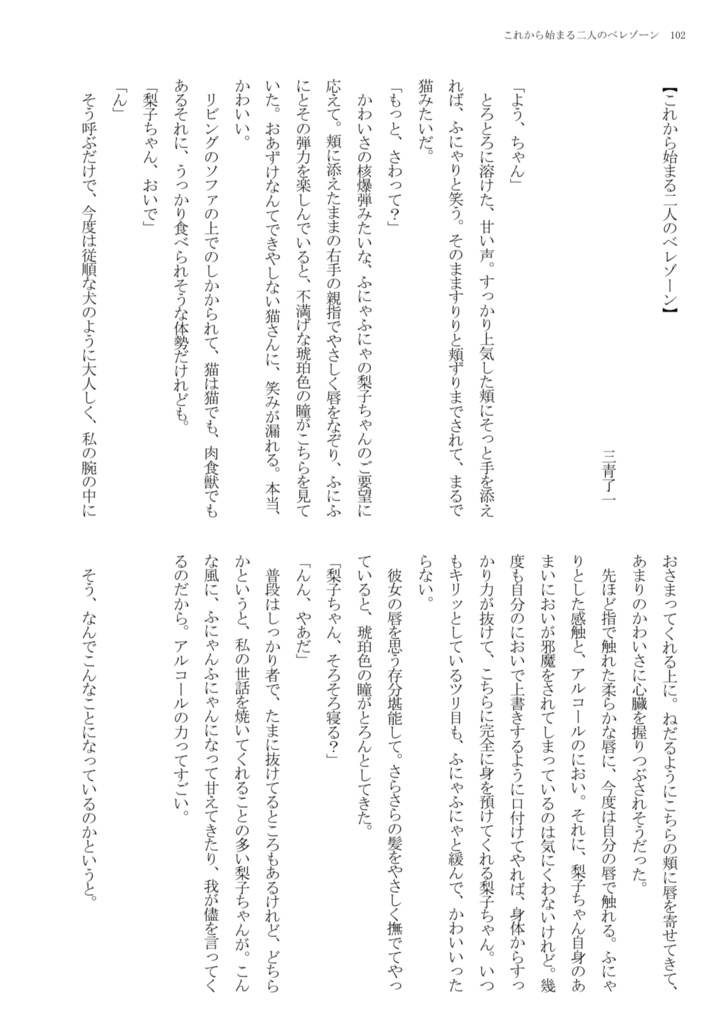 これから始まる二人のベレゾーン　102
【これから始まる二人のベレゾーン】
三青了一
「よう、ちゃん」
　とろとろに溶けた、甘い声。すっかり上気した頬にそっと手を添え
れば、ふにゃりと笑う。そのまますりりと頬ずりまでされて、まるで
猫みたいだ。
「もっと、さわって？」
　かわいさの核爆弾みたいな、ふにゃふにゃの梨子ちゃんのご要望に
応えて。頬に添えたままの右手の親指でやさしく唇をなぞり、ふにふ
にとその弾力を楽しんでいると、不満げな琥珀色の瞳がこちらを見て
いた。おあずけなんてできやしない猫さんに、笑みが漏れる。本当、
かわいい。
　リビングのソファの上でのしかかられて、猫は猫でも、肉食獣でも
あるそれに、うっかり食べられそうな体勢だけれども。
「梨子ちゃん、おいで」
「ん」
　そう呼ぶだけで、今度は従順な犬のように大人しく、私の腕の中に
おさまってくれる上に。ねだるようにこちらの頬に唇を寄せてきて、
あまりのかわいさに心臓を握りつぶされそうだった。
　先ほど指で触れた柔らかな唇に、今度は自分の唇で触れる。ふにゃ
りとした感触と、アルコールのにおい。それに、梨子ちゃん自身のあ
まいにおいが邪魔をされてしまっているのは気にくわないけれど。幾
度も自分のにおいで上書きするように口付けてやれば、身体からすっ
かり力が抜けて、こちらに完全に身を預けてくれる梨子ちゃん。いつ
もキリッとしているツリ目も、ふにゃふにゃと緩んで、かわいいった
らない。
　彼女の唇を思う存分堪能して。さらさらの髪をやさしく撫でてやっ
ていると、琥珀色の瞳がとろんとしてきた。
「梨子ちゃん、そろそろ寝る？」
「んん、やあだ」
　普段はしっかり者で、たまに抜けてるところもあるけれど、どちら
かというと、私の世話を焼いてくれることの多い梨子ちゃんが。こん
な風に、ふにゃんふにゃんになって甘えてきたり、我が儘を言ってく
るのだから。アルコールの力ってすごい。
　そう、なんでこんなことになっているのかというと。